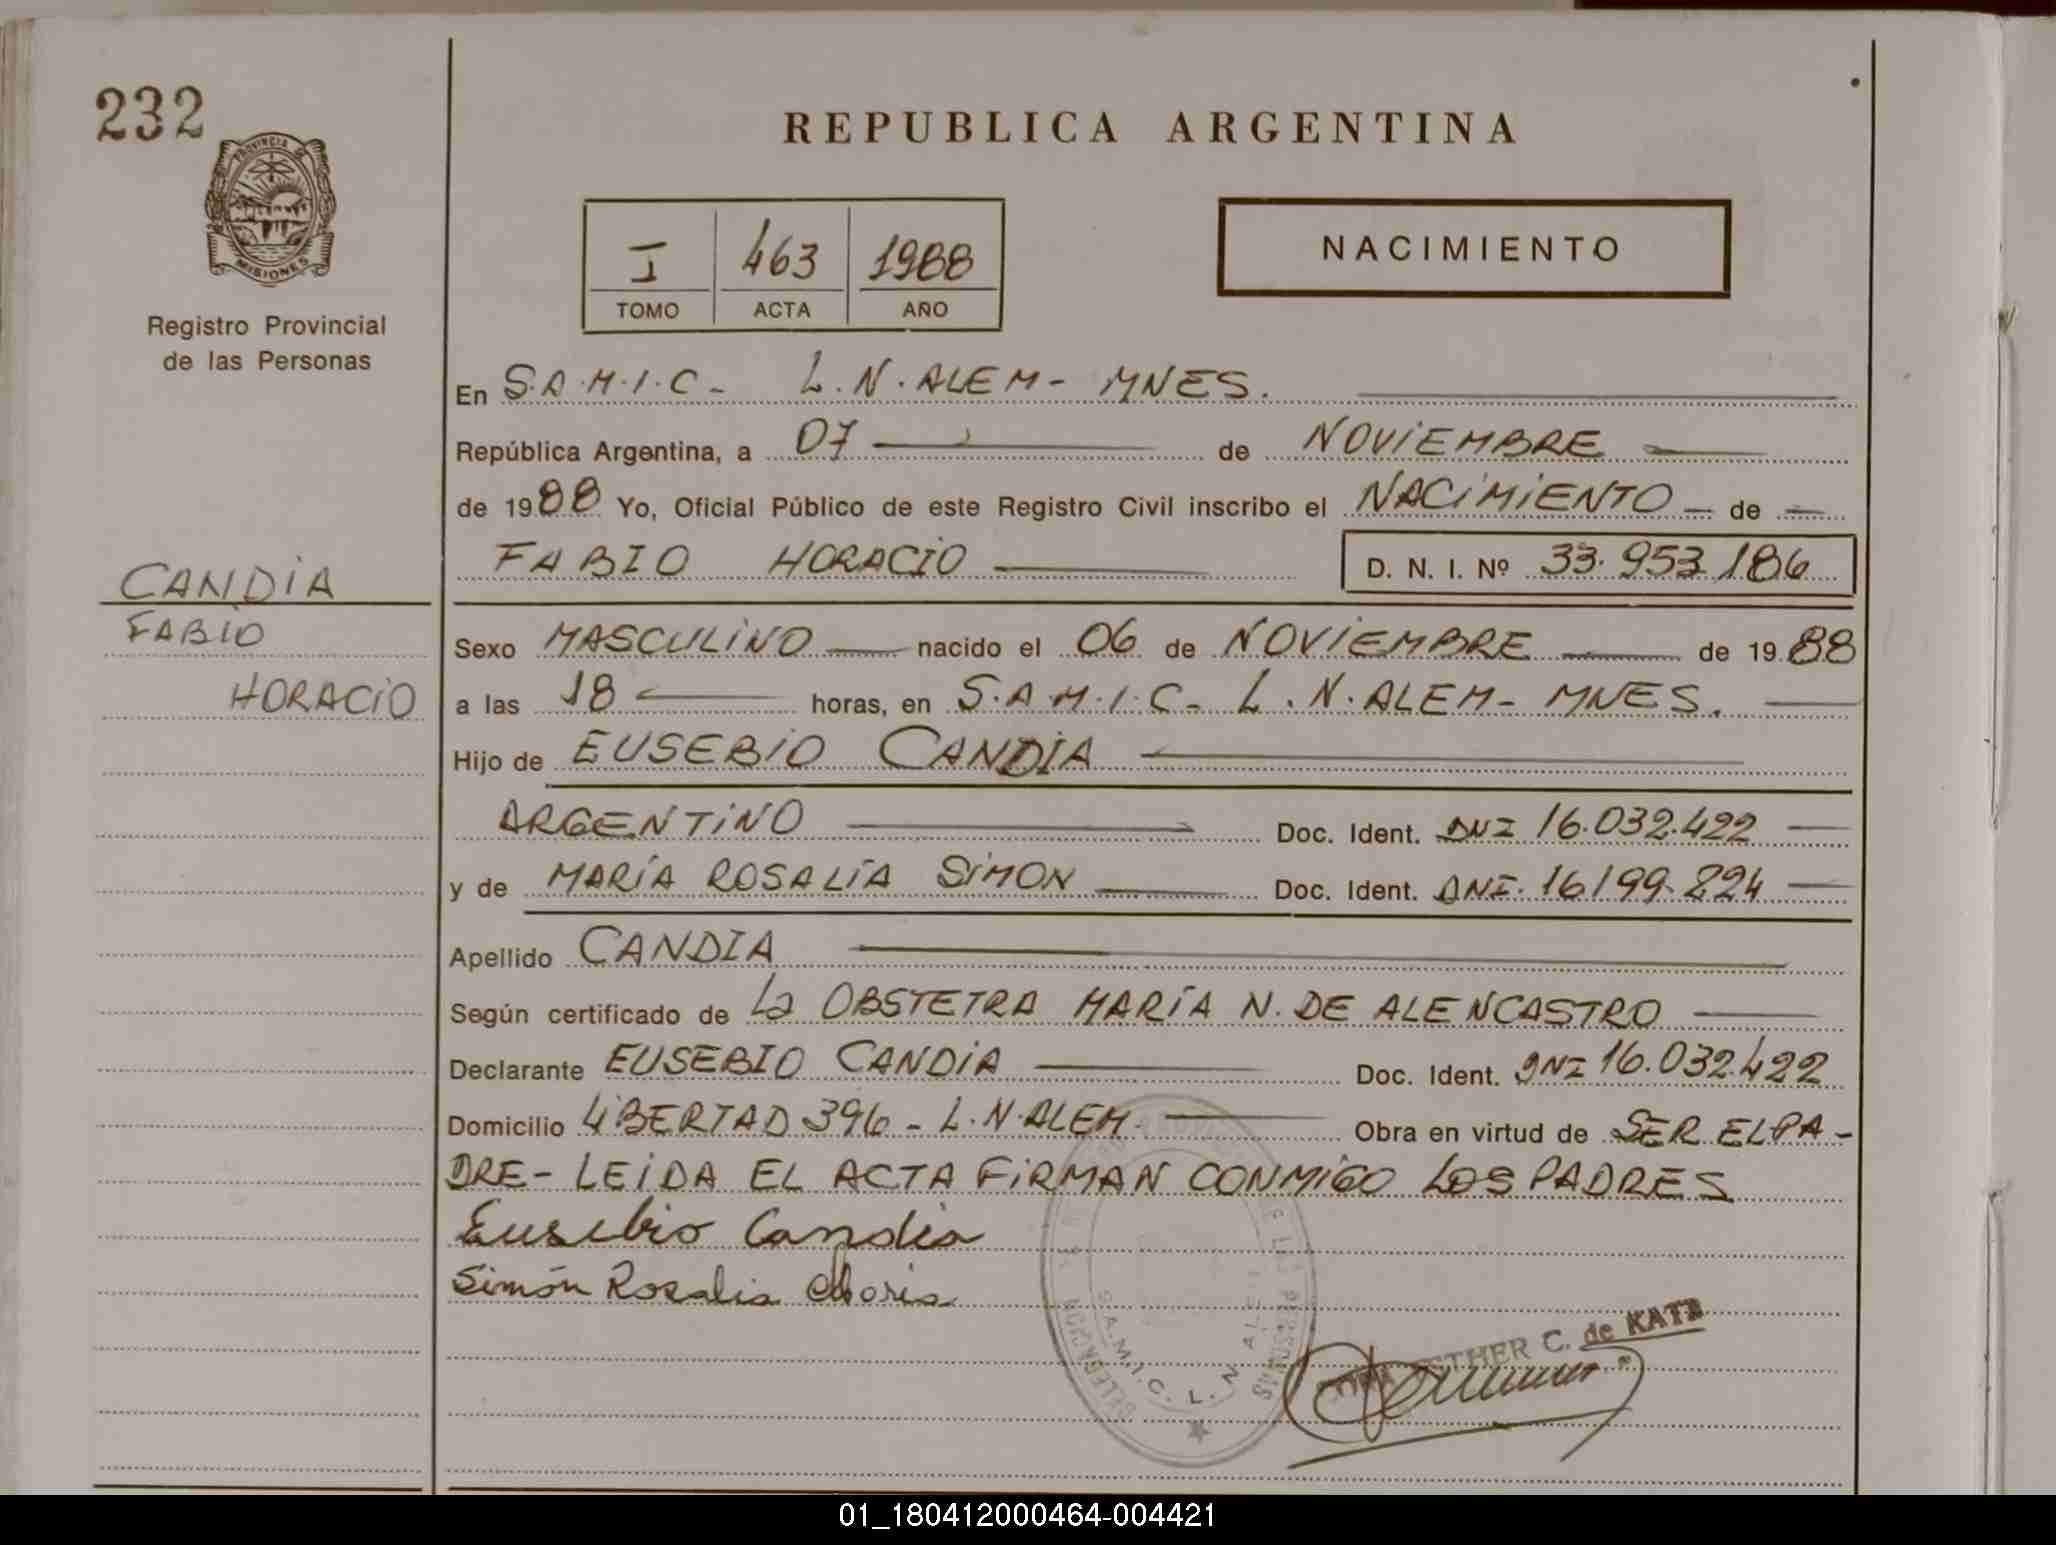 232
PROVINCIA DE
MISIONES
Registro Provincial
de las Personas
CANDIA
FABIO
HORACIO
REPUBLICA ARGENTINA
I 463 1988
TOMO ACTA AÑO
NACIMIENTO
En S.A.M.I.C- L.N.ALEM- MNES.
República Argentina, a 07 de NOVIEMBRE
de 1988 Yo, Oficial Público de este Registro Civil inscribo el NACIMIENTO de
FABIO HORACIO D. N. I. Nº 33.953.186
Sexo MASCULINO nacido el 06 de NOVIEMBRE de 1988
a las 18 horas, en S.A.M.I.C- L.N.ALEM- MNES.
Hijo de EUSEBIO CANDIA
ARGENTINO Doc. Ident. DNI 16.032.422
y de MARÍA ROSALÍA SIMON Doc. Ident. DNI. 16.199.224
Apellido CANDIA
Según certificado de La OBSTETRA MARÍA N. DE ALENCASTRO
Declarante EUSEBIO CANDIA Doc. Ident. DNI 16.032.422
Domicilio LIBERTAD 396 - L.N.ALEM- Obra en virtud de SER EL PA-
DRE- LEIDA EL ACTA FIRMAN CONMIGO LOS PADRES
Eusebio Candia
Simón Rosalia Maria
DELEGACION
DE LAS PERSONAS
S.A.M.I.C. L. N. ALEM
ESTHER C. de KATZ
01_180412000464-004421